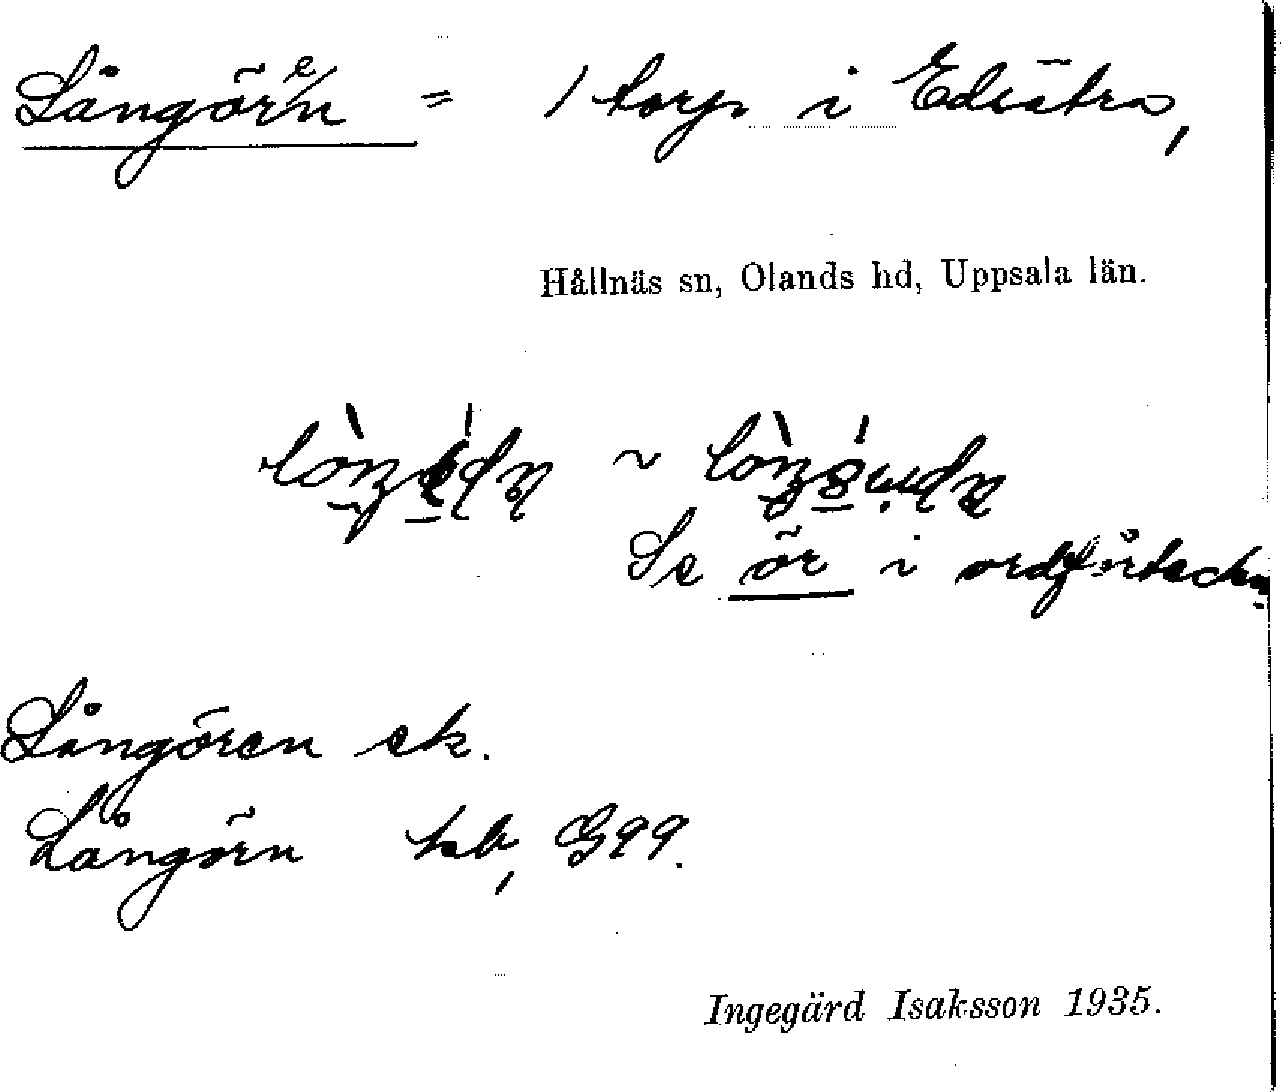 Långör/en = 1 torp i Edsätra,
Hållnäs sn, Olands hd, Uppsala län.
~
Se ör i ordförteckn.
Långören ek.
Långörn hb, G99.
Ingegärd Isaksson 1935.